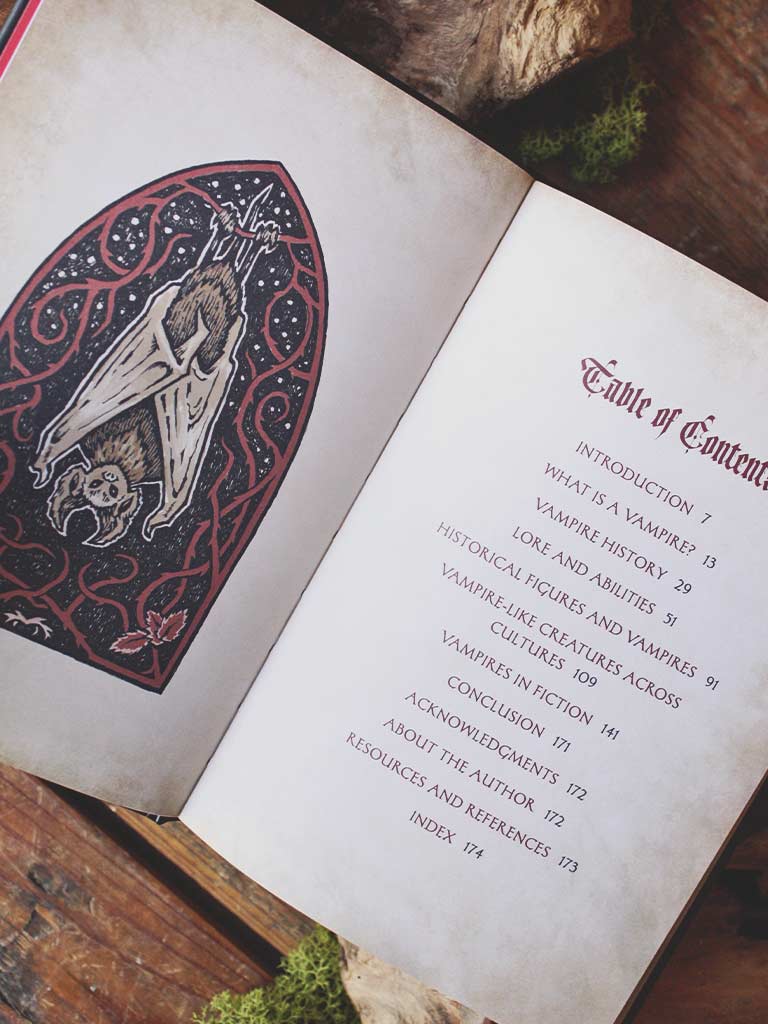 Table of Contents
INTRODUCTION 7
WHAT IS A VAMPIRE? 13
VAMPIRE HISTORY 29
LORE AND ABILITIES 51
HISTORICAL FIGURES AND VAMPIRES 91
VAMPIRE-LIKE CREATURES ACROSS
CULTURES 109
VAMPIRES IN FICTION 141
CONCLUSION 171
ACKNOWLEDGMENTS 172
ABOUT THE AUTHOR 172
RESOURCES AND REFERENCES 173
INDEX 174